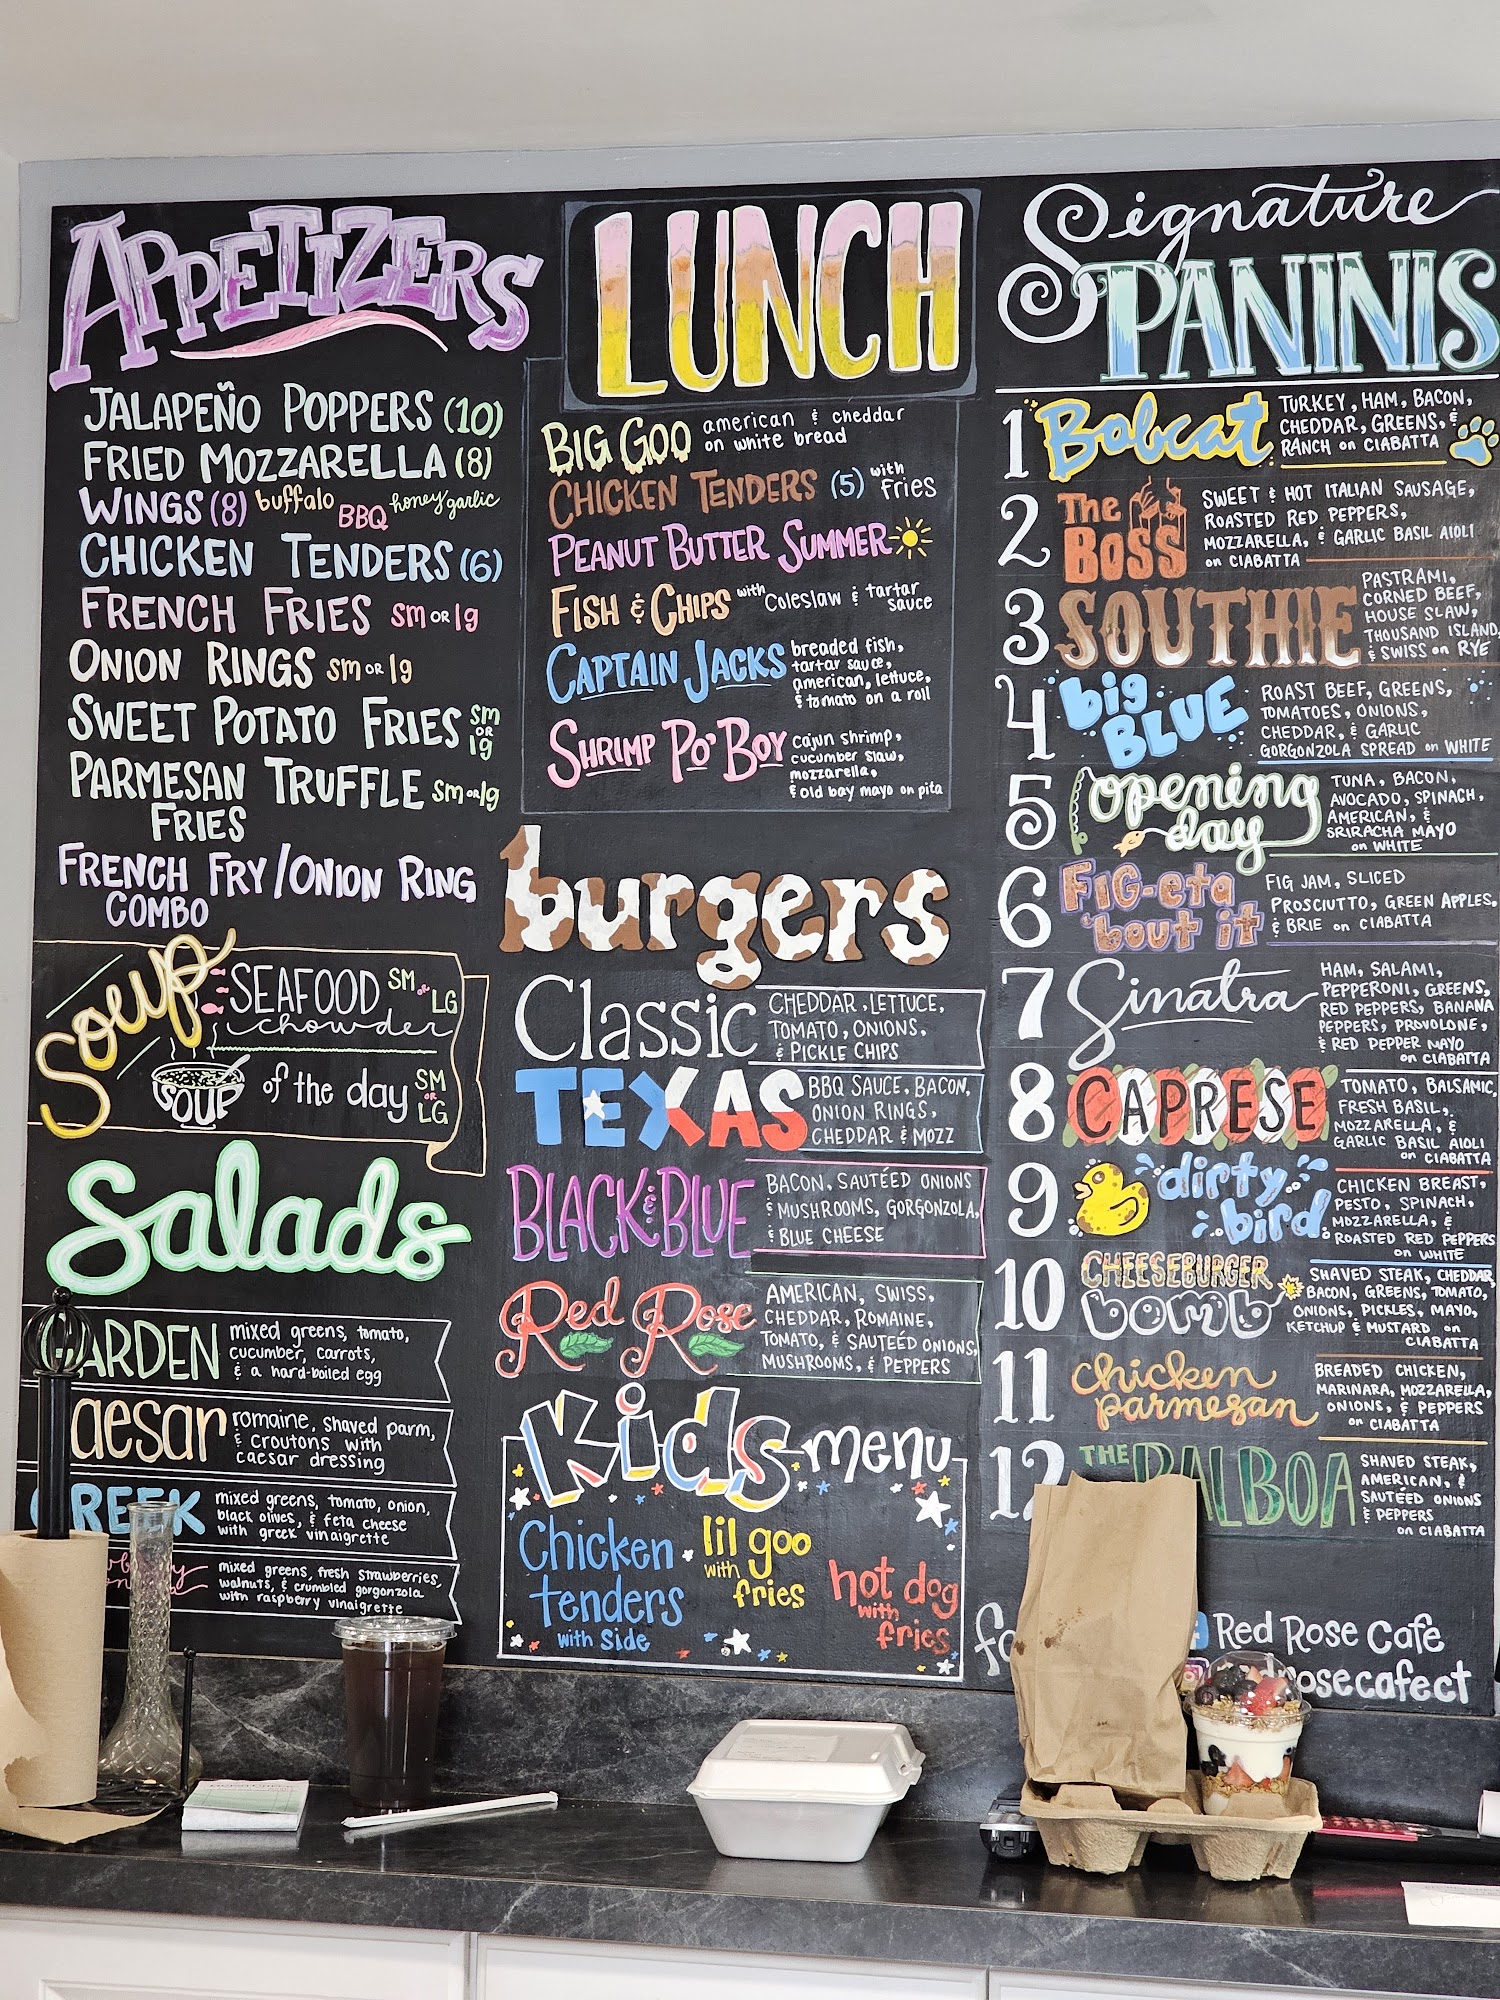 APPETIZERS
JALAPEÑO POPPERS (10)
FRIED MOZZARELLA (8)
WINGS (8) buffalo BBQ honey garlic
CHICKEN TENDERS (6)
FRENCH FRIES sm OR lg
ONION RINGS sm OR lg
SWEET POTATO FRIES sm OR lg
PARMESAN TRUFFLE sm OR lg
FRIES
FRENCH FRY/ONION RING
COMBO
Soup
SEAFOOD SM OR LG
chowder
SOUP of the day SM OR LG
Salads
GARDEN mixed greens, tomato,
cucumber, carrots,
& a hard-boiled egg
aesar romaine, shaved parm,
& croutons with
caesar dressing
GREEK mixed greens, tomato, onion,
black olives, & feta cheese
with greek vinaigrette
mixed greens, fresh strawberries,
walnuts, & crumbled gorgonzola
with raspberry vinaigrette
LUNCH
BIG GOO american & cheddar
on white bread
CHICKEN TENDERS (5) with fries
PEANUT BUTTER SUMMER
FISH & CHIPS with coleslaw & tartar
sauce
CAPTAIN JACKS breaded fish,
tartar sauce,
american, lettuce,
& tomato on a roll
SHRIMP PO' BOY cajun shrimp,
cucumber slaw,
mozzarella,
& old bay mayo on pita
burgers
Classic CHEDDAR, LETTUCE,
TOMATO, ONIONS,
& PICKLE CHIPS
TEXAS BBQ SAUCE, BACON,
ONION RINGS,
CHEDDAR & MOZZ
BLACK & BLUE BACON, SAUTÉED ONIONS
& MUSHROOMS, GORGONZOLA,
& BLUE CHEESE
Red Rose AMERICAN, SWISS,
CHEDDAR, ROMAINE,
TOMATO, & SAUTEÉD ONIONS,
MUSHROOMS, & PEPPERS
Kids menu
Chicken
tenders
with side
lil goo
with
fries
hot dog
with
fries
Signature
PANINIS
1 Bobcat TURKEY, HAM, BACON,
CHEDDAR, GREENS, &
RANCH on CIABATTA
2 The BOSS SWEET & HOT ITALIAN SAUSAGE,
ROASTED RED PEPPERS,
MOZZARELLA, & GARLIC BASIL AIOLI
on CIABATTA
3 SOUTHIE PASTRAMI,
CORNED BEEF,
HOUSE SLAW,
THOUSAND ISLAND,
& SWISS on RYE
4 big BLUE ROAST BEEF, GREENS,
TOMATOES, ONIONS,
CHEDDAR, & GARLIC
GORGONZOLA SPREAD on WHITE
5 opening day TUNA, BACON,
AVOCADO, SPINACH,
AMERICAN, &
SRIRACHA MAYO
on WHITE
6 FIG-eta 'bout it FIG JAM, SLICED
PROSCIUTTO, GREEN APPLES,
& BRIE on CIABATTA
7 Sinatra HAM, SALAMI,
PEPPERONI, GREENS,
RED PEPPERS, BANANA
PEPPERS, PROVOLONE,
& RED PEPPER MAYO
on CIABATTA
8 CAPRESE TOMATO, BALSAMIC,
FRESH BASIL,
MOZZARELLA, &
GARLIC BASIL AIOLI
on CIABATTA
9 dirty bird CHICKEN BREAST,
PESTO, SPINACH,
MOZZARELLA, &
ROASTED RED PEPPERS
on WHITE
10 CHEESEBURGER bomb SHAVED STEAK, CHEDDAR,
BACON, GREENS, TOMATO,
ONIONS, PICKLES, MAYO,
KETCHUP & MUSTARD on
CIABATTA
11 chicken parmesan BREADED CHICKEN,
MARINARA, MOZZARELLA,
ONIONS, & PEPPERS
on CIABATTA
12 THE BALBOA SHAVED STEAK,
AMERICAN, &
SAUTÉED ONIONS
& PEPPERS
on CIABATTA
Red Rose Cafe
drosecafect